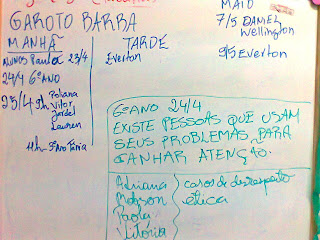 GAROTO BARBA
MANHÃ
ALUNOS Paula 23/4
24/4 6º ANO
25/4 9h Poliana
Vitor
Jordel
Lauren
11h - 5º Ano Tânia
TARDE
Everton
MAIO
7/5 DANIEL
Wellington
9/5 Everton
6º ANO 24/4
EXISTE PESSOAS QUE USAM
SEUS PROBLEMAS PARA
GANHAR ATENÇÃO.
Adriana
Robson
Paola
Vitória
casos de desrespeito
ética